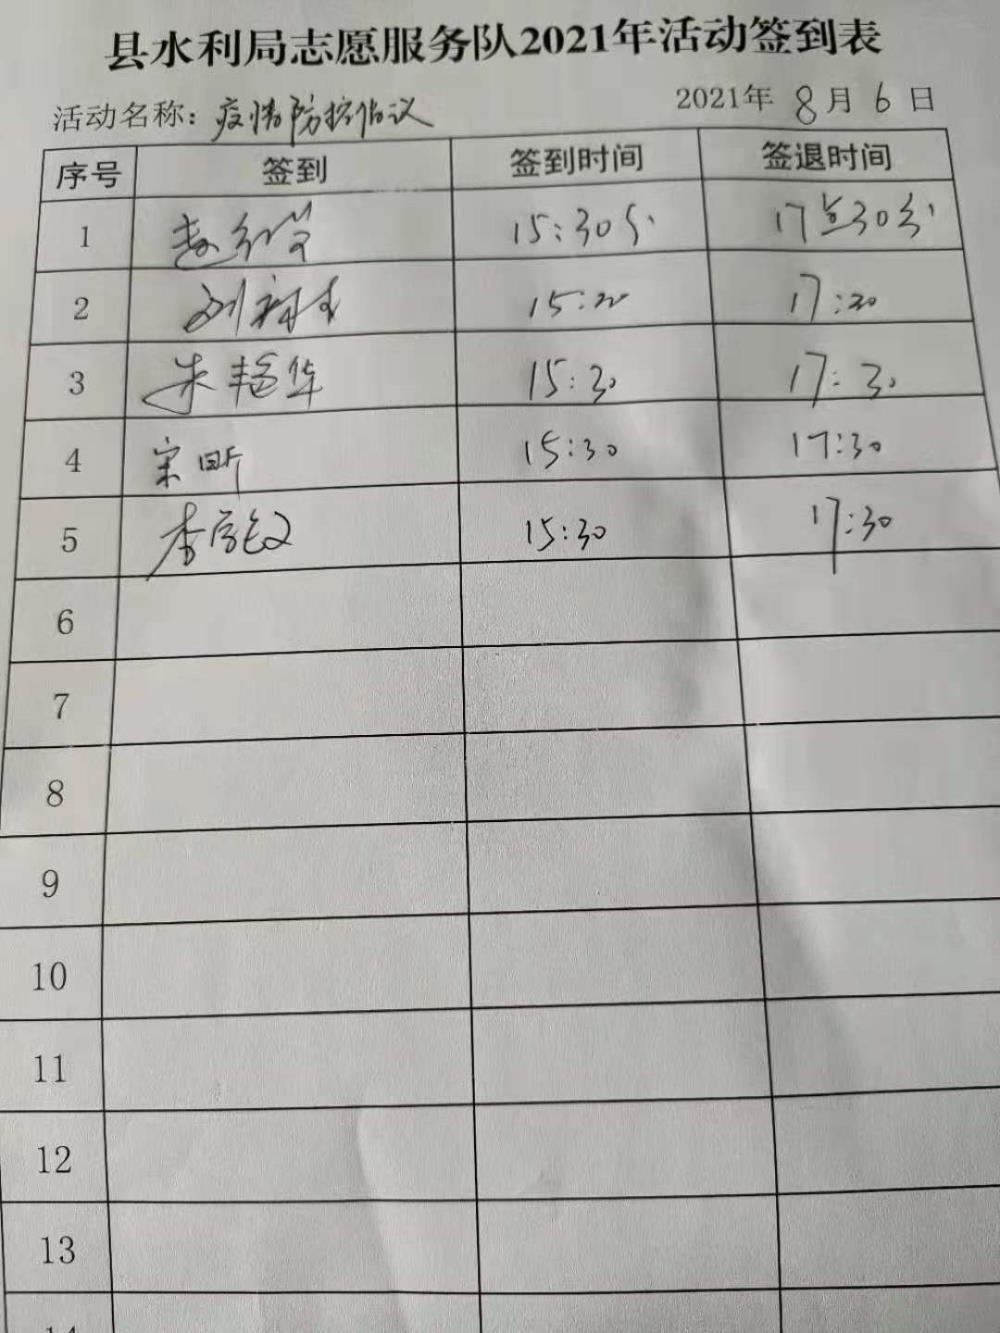 县水利局志愿服务队2021年活动签到表
活动名称：疫情防控倡议 2021年 8月 6日
序号 签到 签到时间 签退时间
1 15:30分 17点30分
2 刘 15:20 17:20
3 朱艳华 15:30 17:30
4 宋昕 15:30 17:30
5 李 15:30 17:30
6
7
8
9
10
11
12
13
14